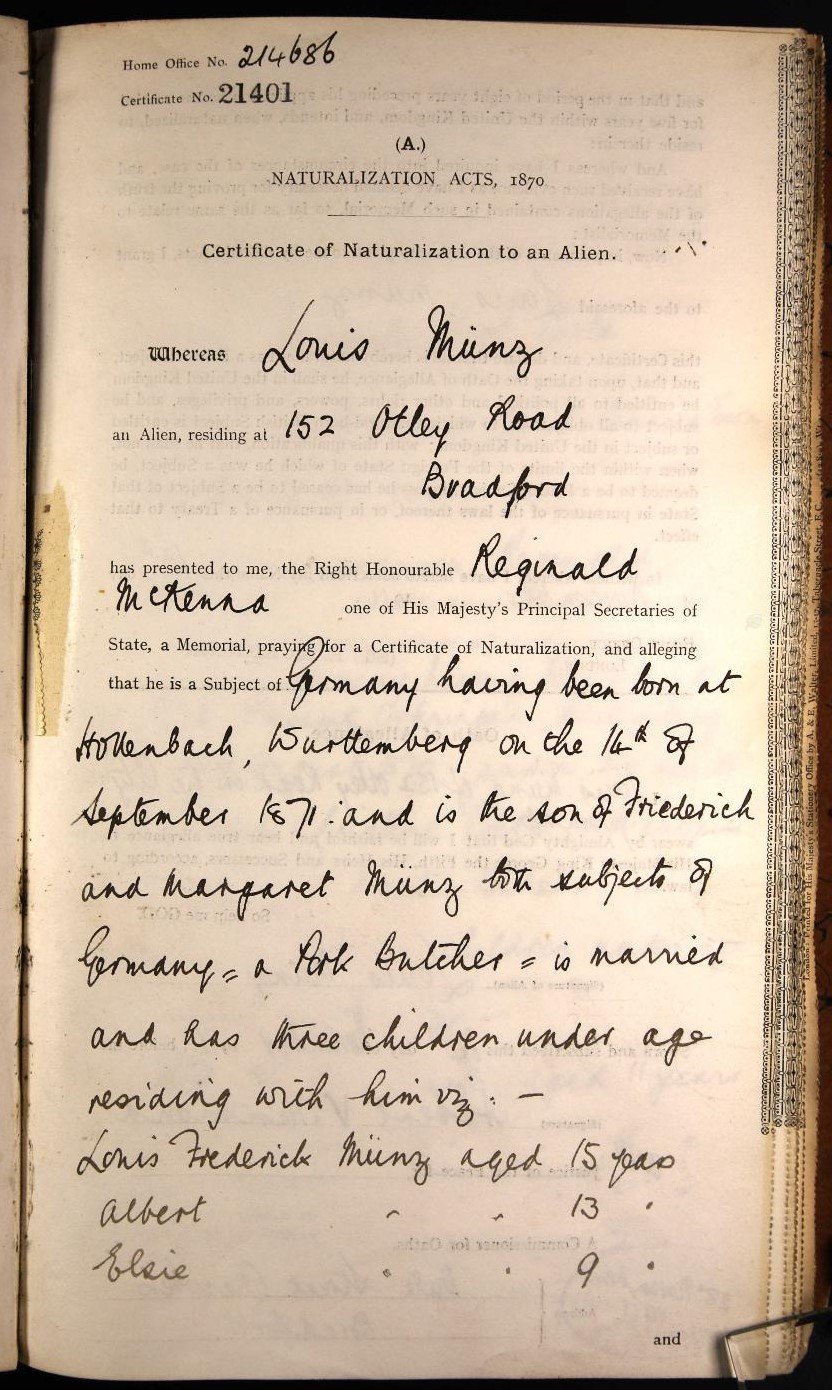 Home Office No. 214686
Certificate No. 21401
(A.)
NATURALIZATION ACTS, 1870
Certificate of Naturalization to an Alien.
Whereas Louis Münz
an Alien, residing at 152 Otley Road
Bradford
has presented to me, the Right Honourable Reginald
McKenna one of His Majesty's Principal Secretaries of
State, a Memorial, praying for a Certificate of Naturalization, and alleging
that he is a Subject of Germany having been born at
Hollenbach, Wurttemberg on the 14th of
September 1871: and is the son of Friederich
and Margaret Münz both subjects of
Germany = a Pork Butcher = is married
and has three children under age
residing with him viz: —
Louis Frederick Münz aged 15 years
Albert " " 13 "
Elsie " " 9 "
and